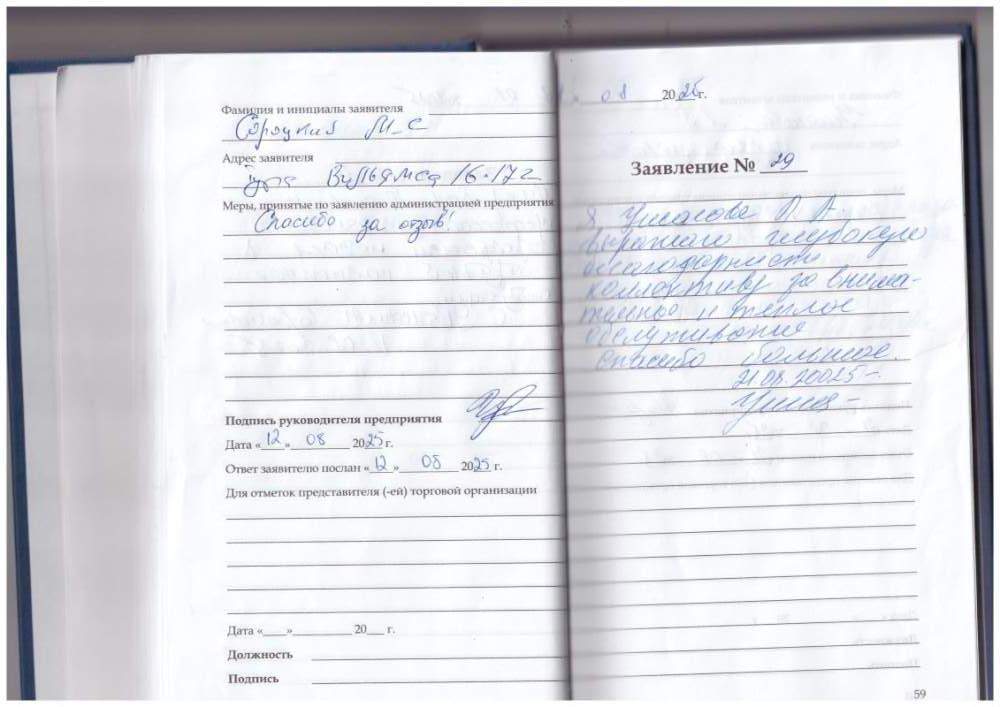 Фамилия и инициалы заявителя
М.С
Адрес заявителя
Вильямса 16-172
Меры, принятые по заявлению администрацией предприятия
Спасибо за отзыв!
Подпись руководителя предприятия
Дата « 12 » 08 2025 г.
Ответ заявителю послан « 12 » 08 2025 г.
Для отметок представителя (-ей) торговой организации
Дата «___»__________ 20___ г.
Должность
Подпись
08 2025г.
Заявление № 29
Я
выражаю глубокую
благодарность
коллективу за внима-
тельное и теплое
обслуживание
спасибо большое.
21.08.20025-.
59